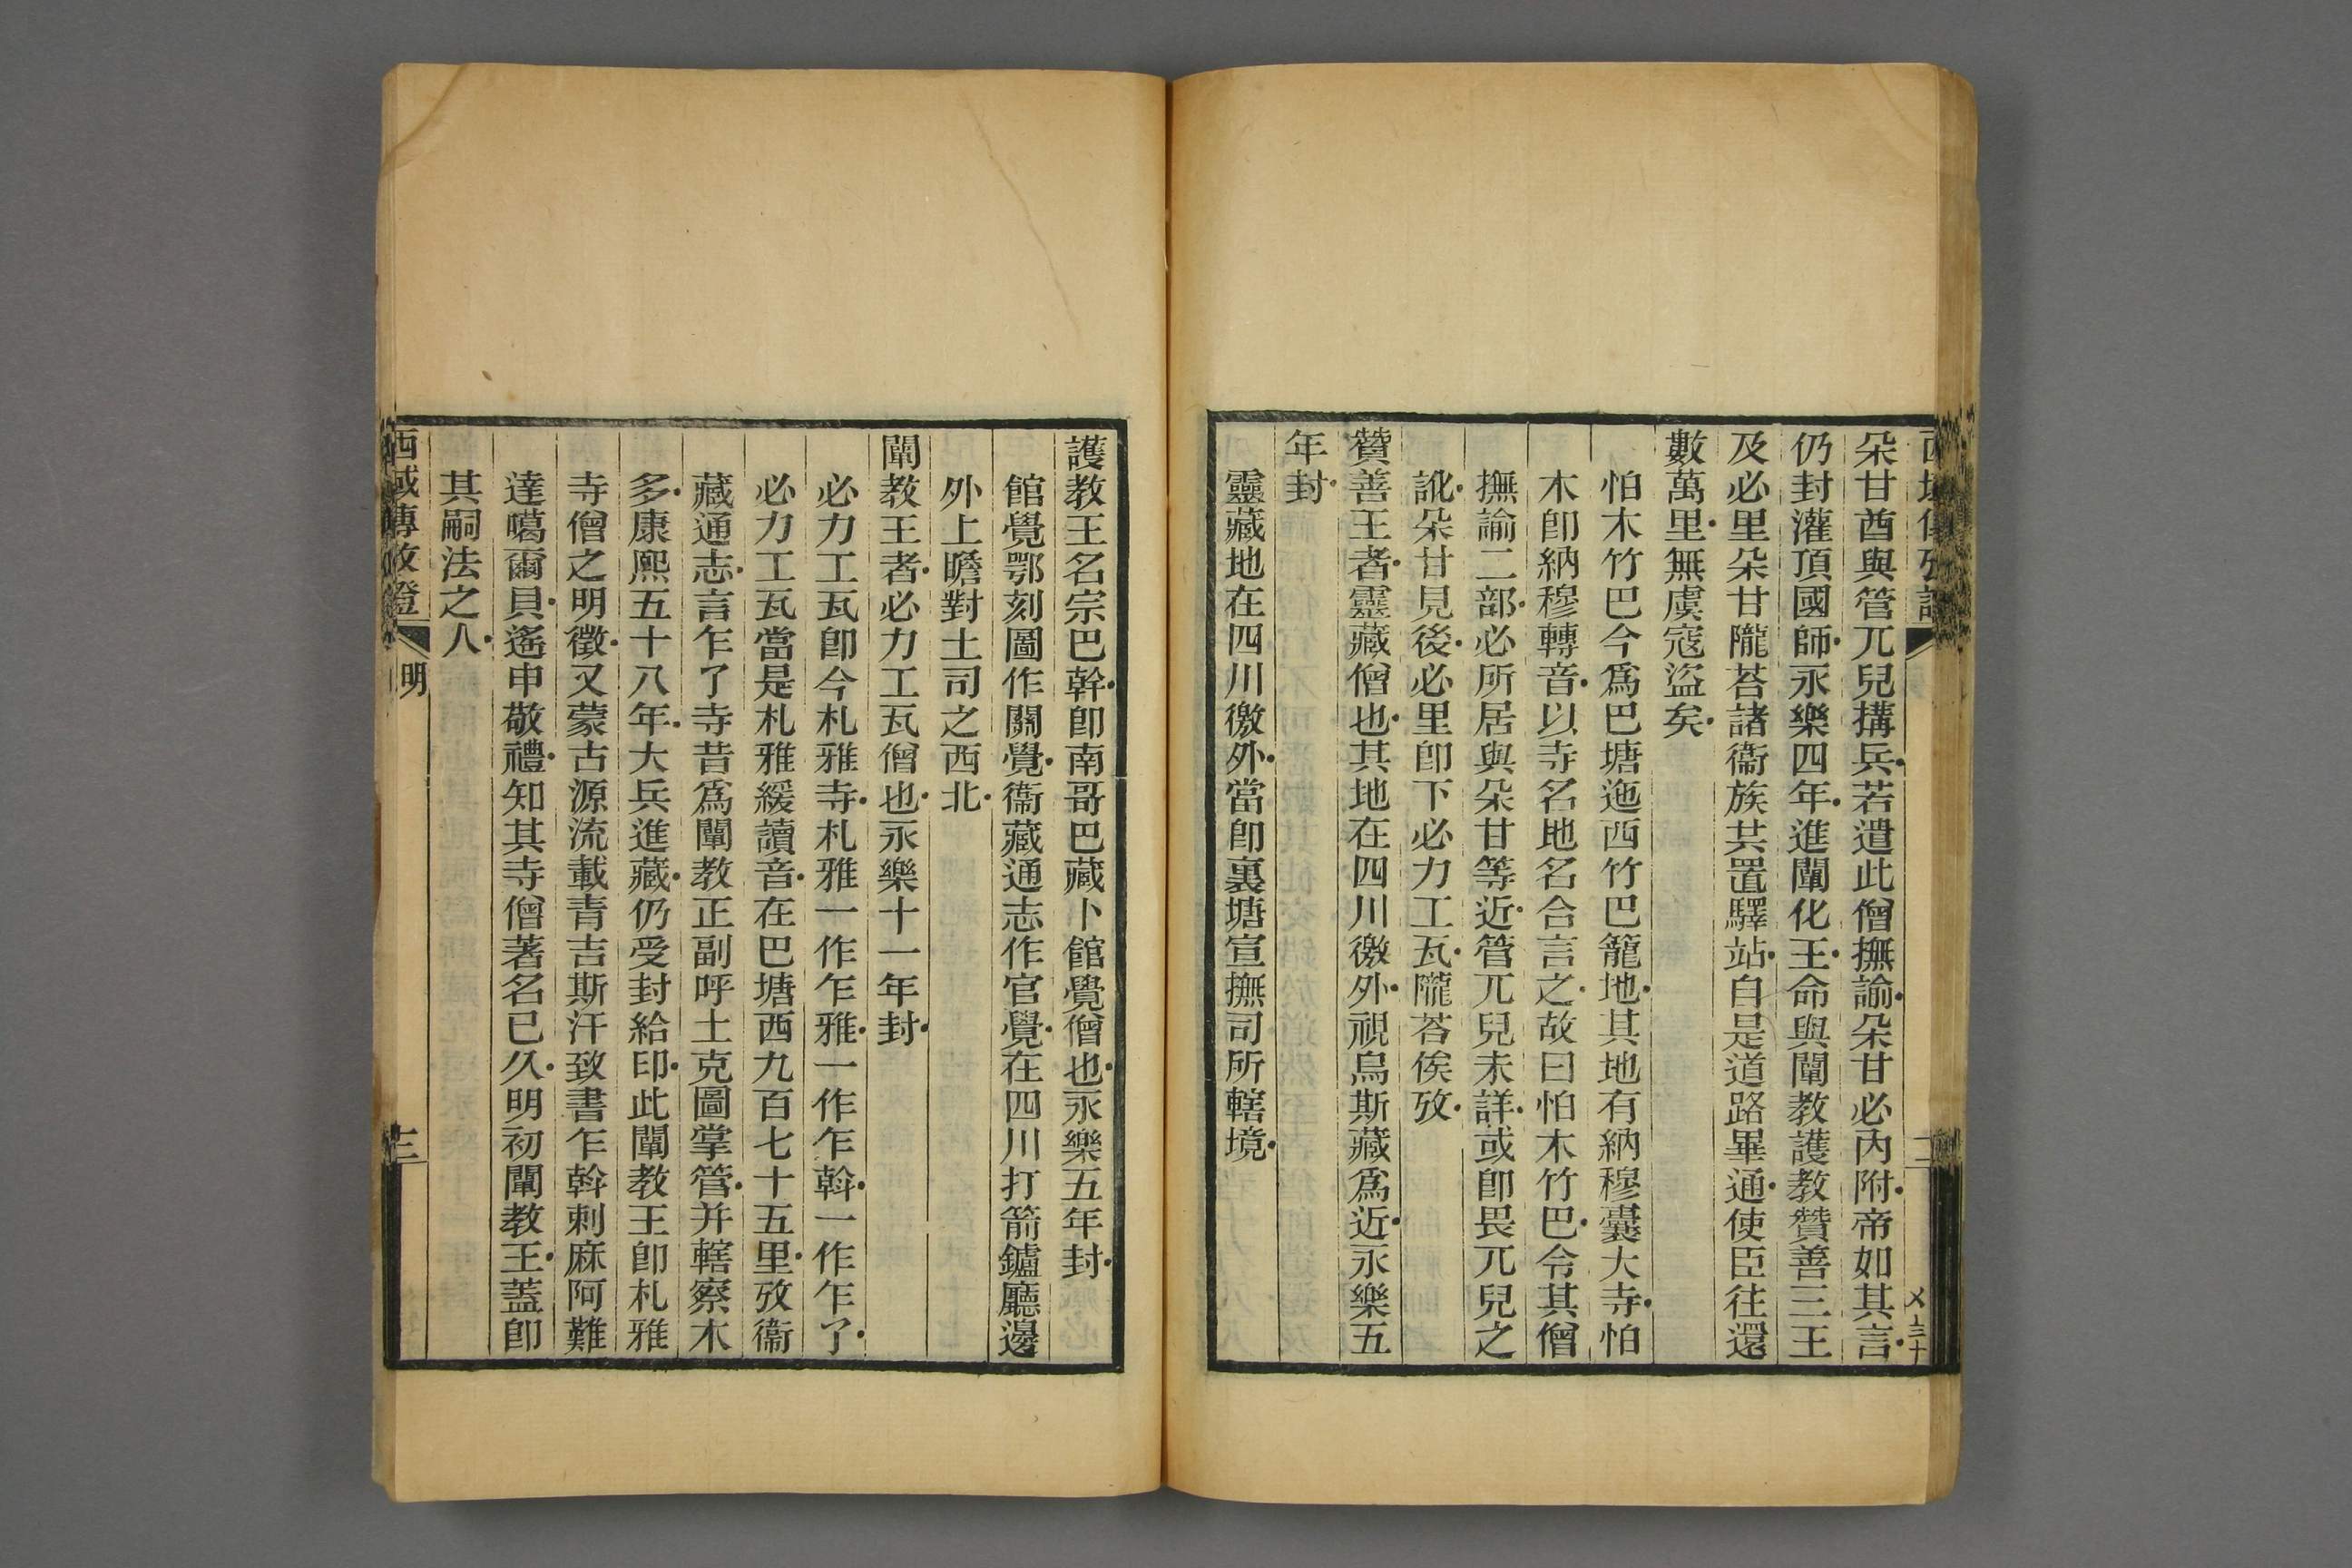 朵甘酋與管兀兒搆兵若遣此僧撫諭朵甘必內附帝如其言
仍封灌頂國師永樂四年進闡化王命與闡教護教贊善三王
及必里朵甘隴荅諸衞族共置驛站自是道路畢通使臣往還
數萬里無虞寇盜矣
怕木竹巴今爲巴塘迤西竹巴籠地其地有納穆囊大寺怕
木卽納穆轉音以寺名地名合言之故曰怕木竹巴令其僧
撫諭二部必所居與朵甘等近管兀兒未詳或卽畏兀兒之
訛朵甘見後必里卽下必力工瓦隴荅俟攷
贊善王者靈藏僧也其地在四川徼外視烏斯藏爲近永樂五
年封
靈藏地在四川徼外當卽裏塘宣撫司所轄境
護教王名宗巴斡卽南哥巴藏卜館覺僧也永樂五年封
館覺鄂刻圖作關覺衞藏通志作官覺在四川打箭鑪廳邊
外上瞻對土司之西北
闡教王者必力工瓦僧也永樂十一年封
必力工瓦卽今札雅寺札雅一作乍雅一作乍斡一作乍了
必力工瓦當是札雅緩讀音在巴塘西九百七十五里攷衞
藏通志言乍了寺昔爲闡教正副呼土克圖掌管并轄察木
多康熙五十八年大兵進藏仍受封給印此闡教王卽札雅
寺僧之明徵又蒙古源流載青吉斯汗致書乍斡剌麻阿難
達噶爾貝遙申敬禮知其寺僧著名已久明初闡教王蓋卽
其嗣法之人
西域傳攷證
明
三